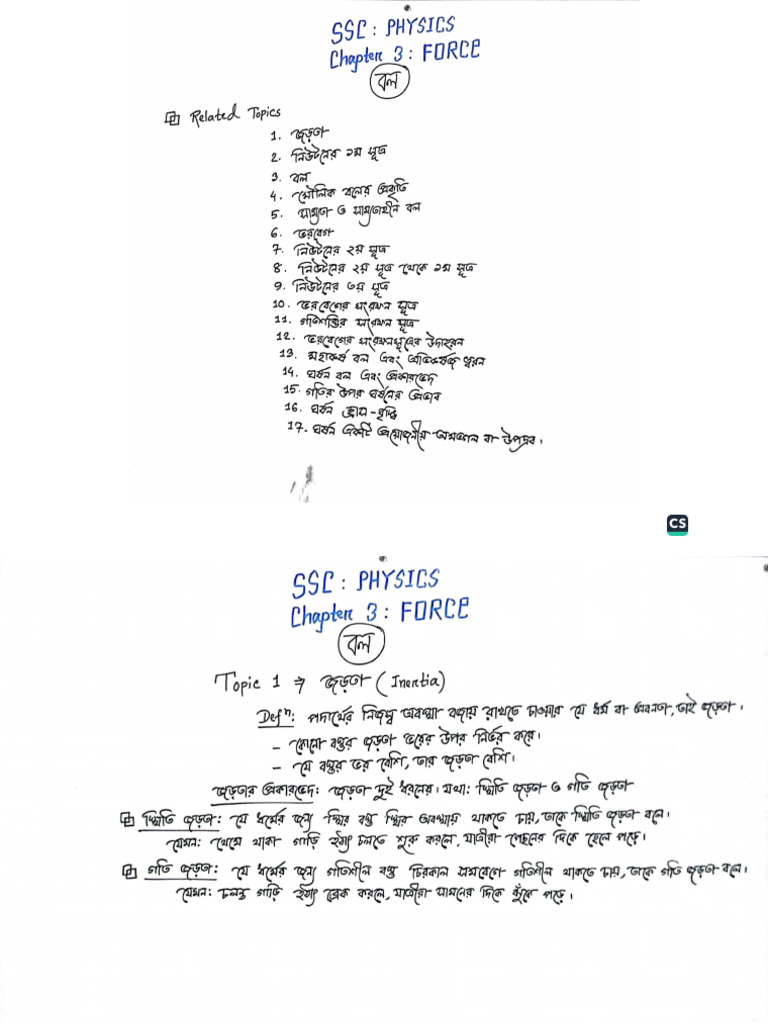 SSC : PHYSICS
Chapter 3 : FORCE
বল
Related Topics
1. জড়তা
2. নিউটনের ১ম সূত্র
3. বল
4. মৌলিক বলের প্রকৃতি
5. সাম্যতা ও সাম্যতাহীন বল
6. ভরবেগ
7. নিউটনের ২য় সূত্র
8. নিউটনের ২য় সূত্র থেকে ১ম সূত্র
9. নিউটনের ৩য় সূত্র
10. ভরবেগের সংরক্ষন সূত্র
11. গতিশক্তির সংরক্ষন সূত্র
12. ভরবেগের সংরক্ষনসূত্রের উদাহরন
13. মহাকর্ষ বল এবং অভিকর্ষজ ত্বরন
14. ঘর্ষন বল এবং প্রকারভেদ
15. গতির উপর ঘর্ষনের প্রভাব
16. ঘর্ষন হ্রাস-বৃদ্ধি
17. ঘর্ষন একটি প্রয়োজনীয় বা উপদ্রব।
CS
SSC : PHYSICS
Chapter 3 : FORCE
বল
Topic 1 ⇒ জড়তা (Inertia)
Defⁿ: পদার্থের নিজস্ব অবস্থা বজায় রাখতে চাওয়ার যে ধর্ম বা প্রবনতা, তাই জড়তা।
- কোনো বস্তুর জড়তা ভরের উপর নির্ভর করে।
- যে বস্তুর ভর বেশি, তার জড়তা বেশি।
জড়তার প্রকারভেদ: জড়তা দুই ধরনের। যথা: স্থিতি জড়তা ও গতি জড়তা
স্থিতি জড়তা: যে ধর্মের জন্য স্থির বস্তু স্থির অবস্থায় থাকতে চায়, তাকে স্থিতি জড়তা বলে।
যেমন: থেমে থাকা গাড়ি হঠাৎ চলতে শুরু করলে, যাত্রীরা পেছনের দিকে হেলে পড়ে।
গতি জড়তা: যে ধর্মের জন্য গতিশীল বস্তু চিরকাল সমবেগে গতিশীল থাকতে চায়, তাকে গতি জড়তা বলে।
যেমন: চলন্ত গাড়ি হঠাৎ ব্রেক করলে, যাত্রীরা সামনের দিকে ঝুঁকে পড়ে।